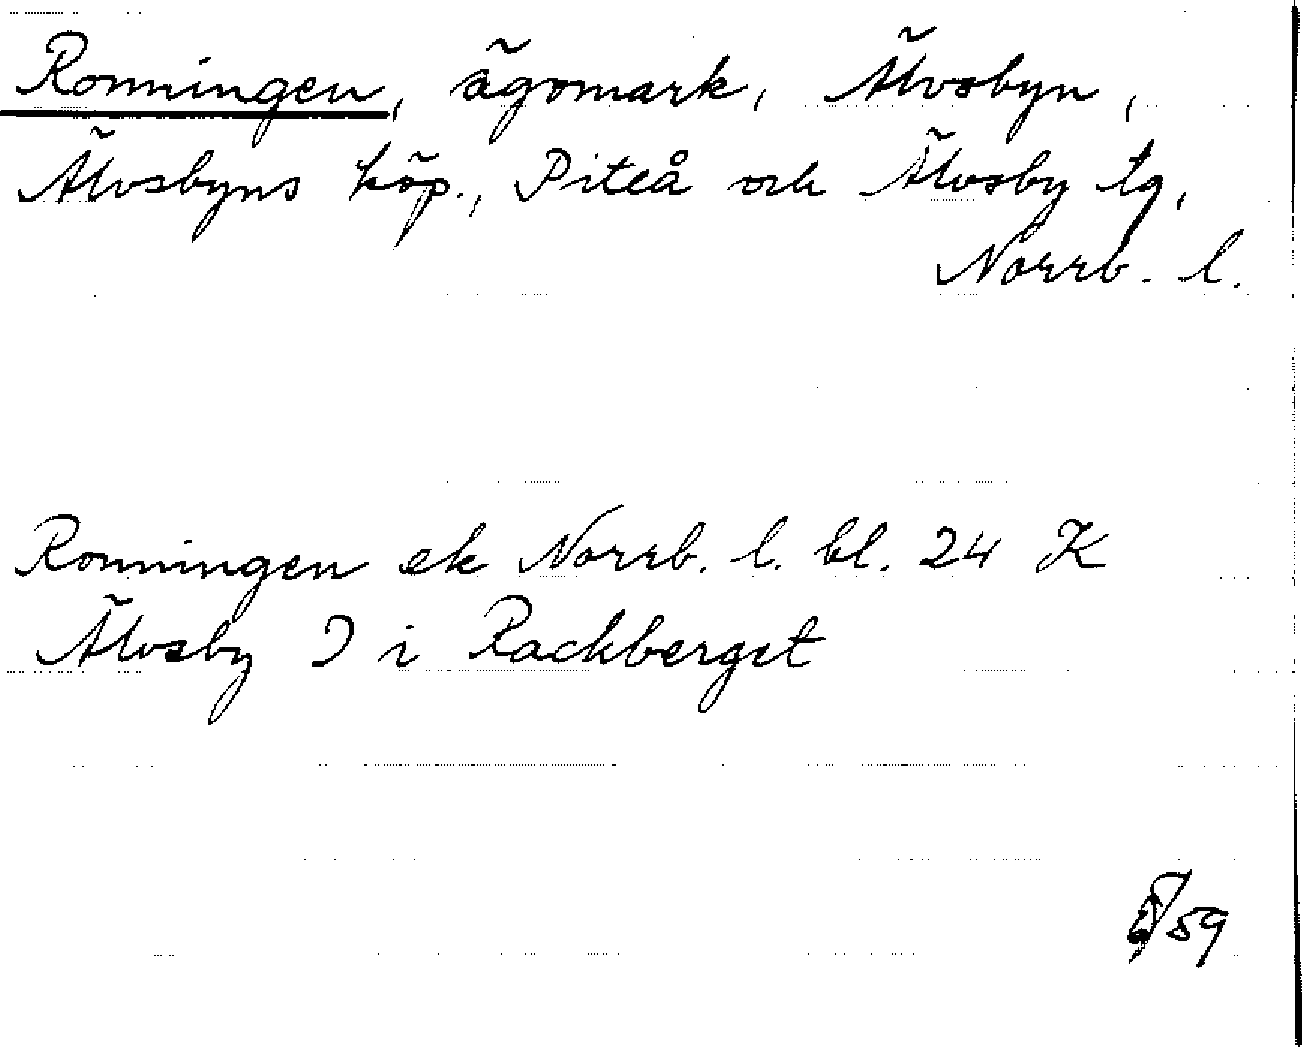 Ronningen, ägomark, Älvsbyn,
Älvsbyns köp., Piteå och Älvsby tg,
Norrb. l.
Ronningen ek Norrb. l. bl. 24 K
Älvsby I i Rackberget
/59